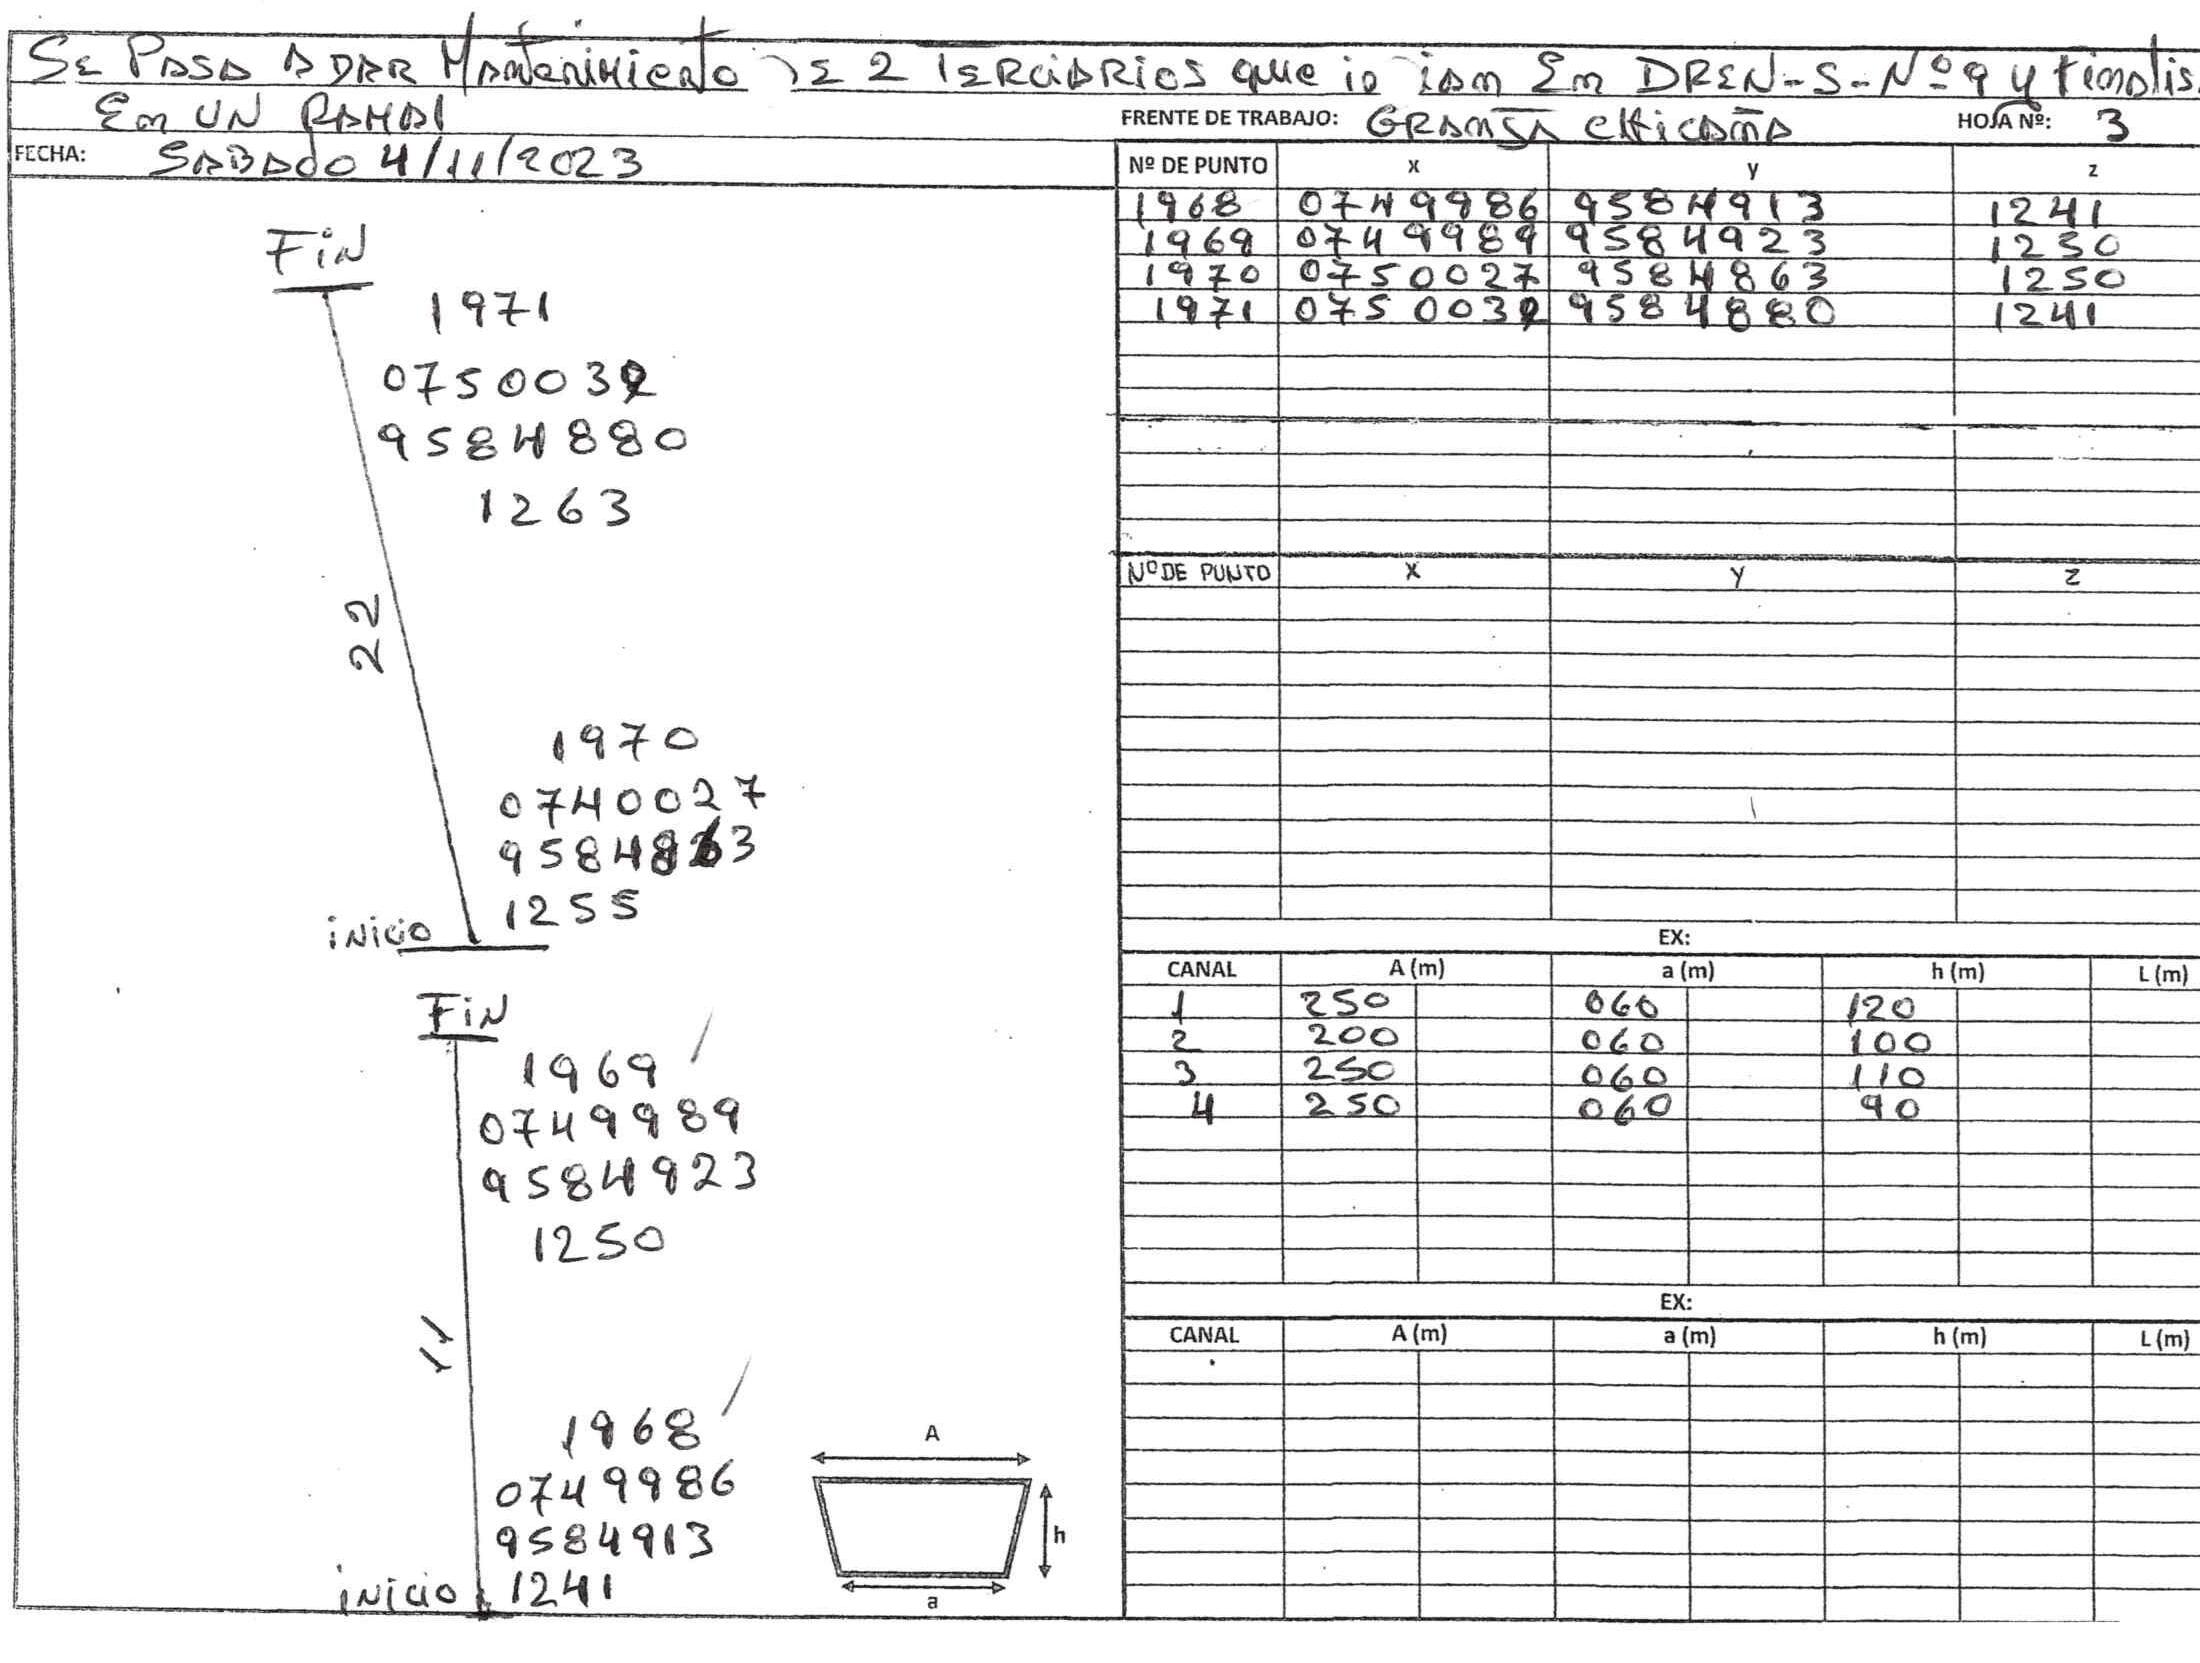 SE PASA A DAR Mantenimiento DE 2 TERCIARIOS que in ian En DREN-S-Nº9 y finalis.
En UN RAMAl
FRENTE DE TRABAJO: GRANJA CHICAÑA HOJA Nº: 3
FECHA: SABADO 4/11/2023
Nº DE PUNTO x y z
1968 0749986 9584913 1241
1969 0749989 9584923 1250
1970 0750027 9584863 1250
1971 0750032 9584880 1241
Nº DE PUNTO X Y Z
EX:
CANAL A (m) a (m) h (m) L (m)
1 250 060 120
2 200 060 100
3 250 060 110
4 250 060 90
EX:
CANAL A (m) a (m) h (m) L (m)
FiN
1971
0750032
9584880
1263
22
1970
0740027
9584863
1255
iNicio
FiN
1969
0749989
9584923
1250
11
1968
0749986
9584913
iNicio 1241
A
h
a